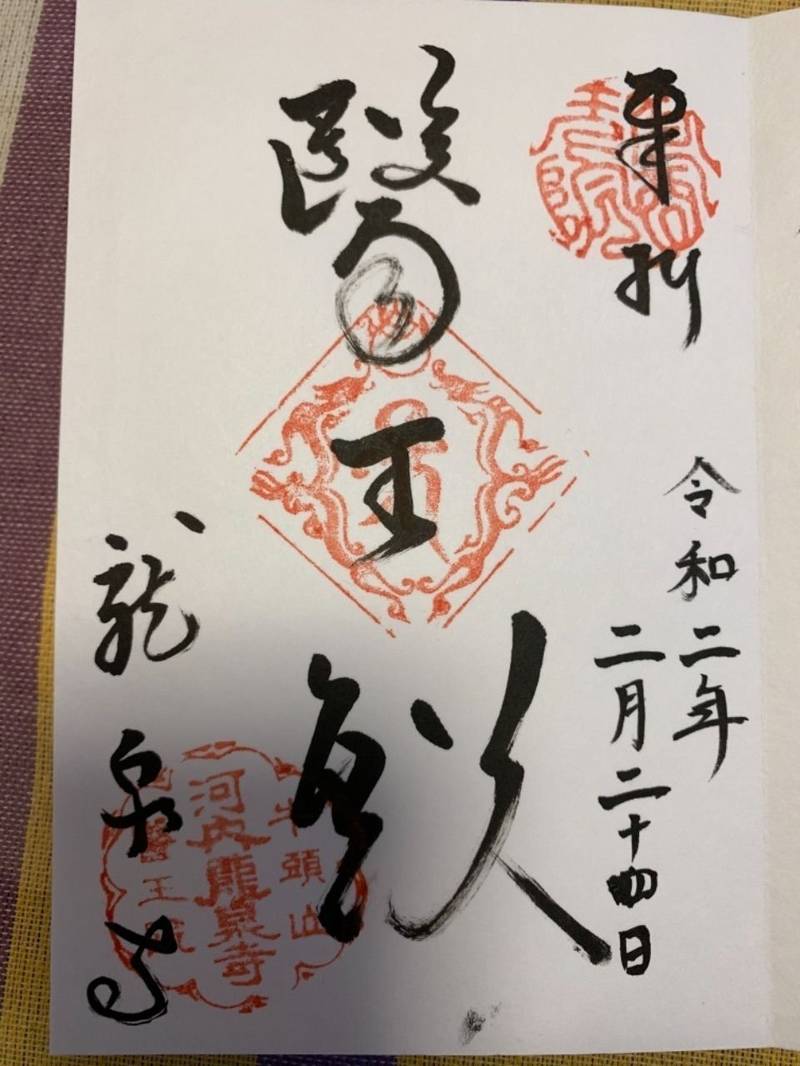 奉拝
令和二年
二月二十四日
醫王殿
龍泉寺
牛頭山
河内龍泉寺
醫王院